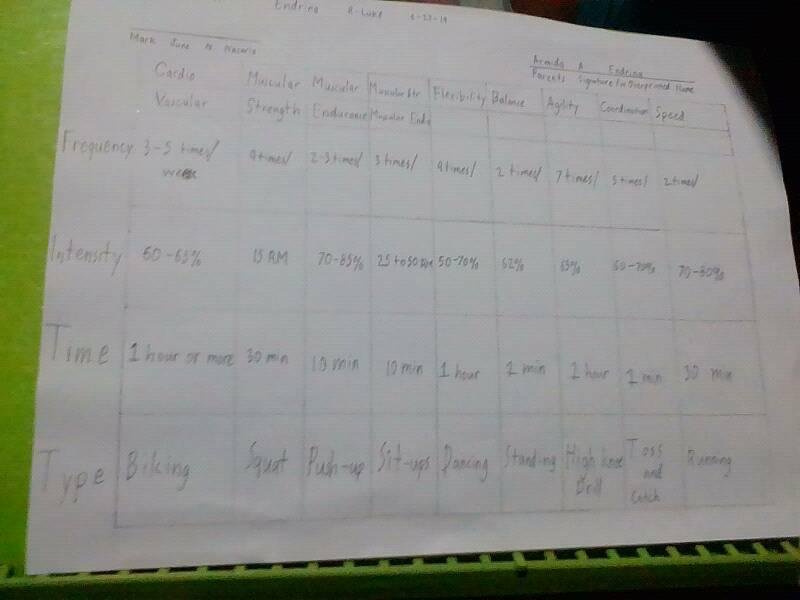 Endrina R-Luke 6-23-19
Mark June N Nazario
Armida A Endrina
Parents Signature for Overprinted Name
Cardio Vascular Muscular Strength Muscular Endurance Muscular Str Muscular Endu Flexibility Balance Agility Coordination Speed
Frequency 3-5 times/ week 4 times/ 2-3 times/ 3 times/ 4 times/ 2 times/ 7 times/ 5 times/ 2 times/
Intensity 60-65% 15 RM 70-85% 25 to 50 RM 50-70% 62% 65% 60-70% 70-80%
Time 1 hour or more 30 min 10 min 10 min 1 hour 1 min 1 hour 1 min 30 min
Type Biking Squat Push-up Sit-ups Dancing Standing High knee Drill Toss and Catch Running